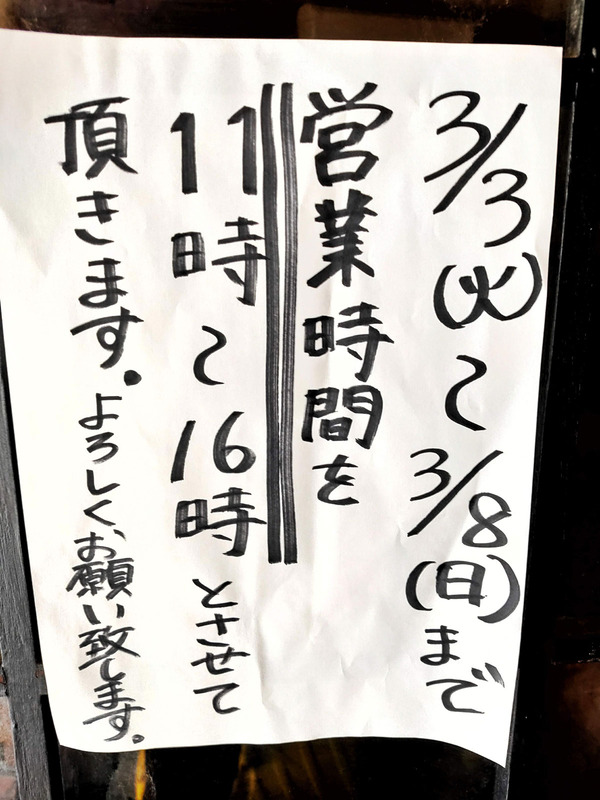 3/3(火)〜3/8(日)まで
営業時間を
11時〜16時とさせて
頂きます。よろしく、お願い致します。